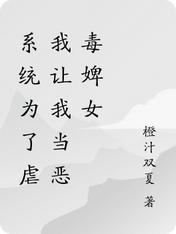 系统为了虐
我让我当恶
毒婢女
橙汁双夏 著